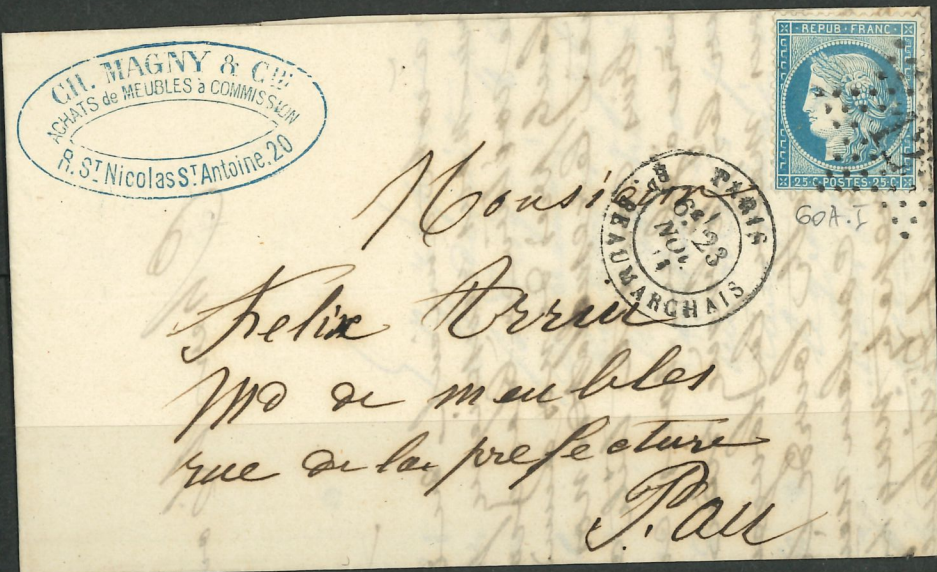 CH. MAGNY & CIE
ACHATS de MEUBLES à COMMISSION
R. ST Nicolas ST Antoine. 20
REPUB · FRANC
25 · C · POSTES · 25 · C
60A.I
PARIS
23
NOV.
BD BEAUMARCHAIS
Monsieur
Felix
Md de meubles
rue de la prefecture
Pau